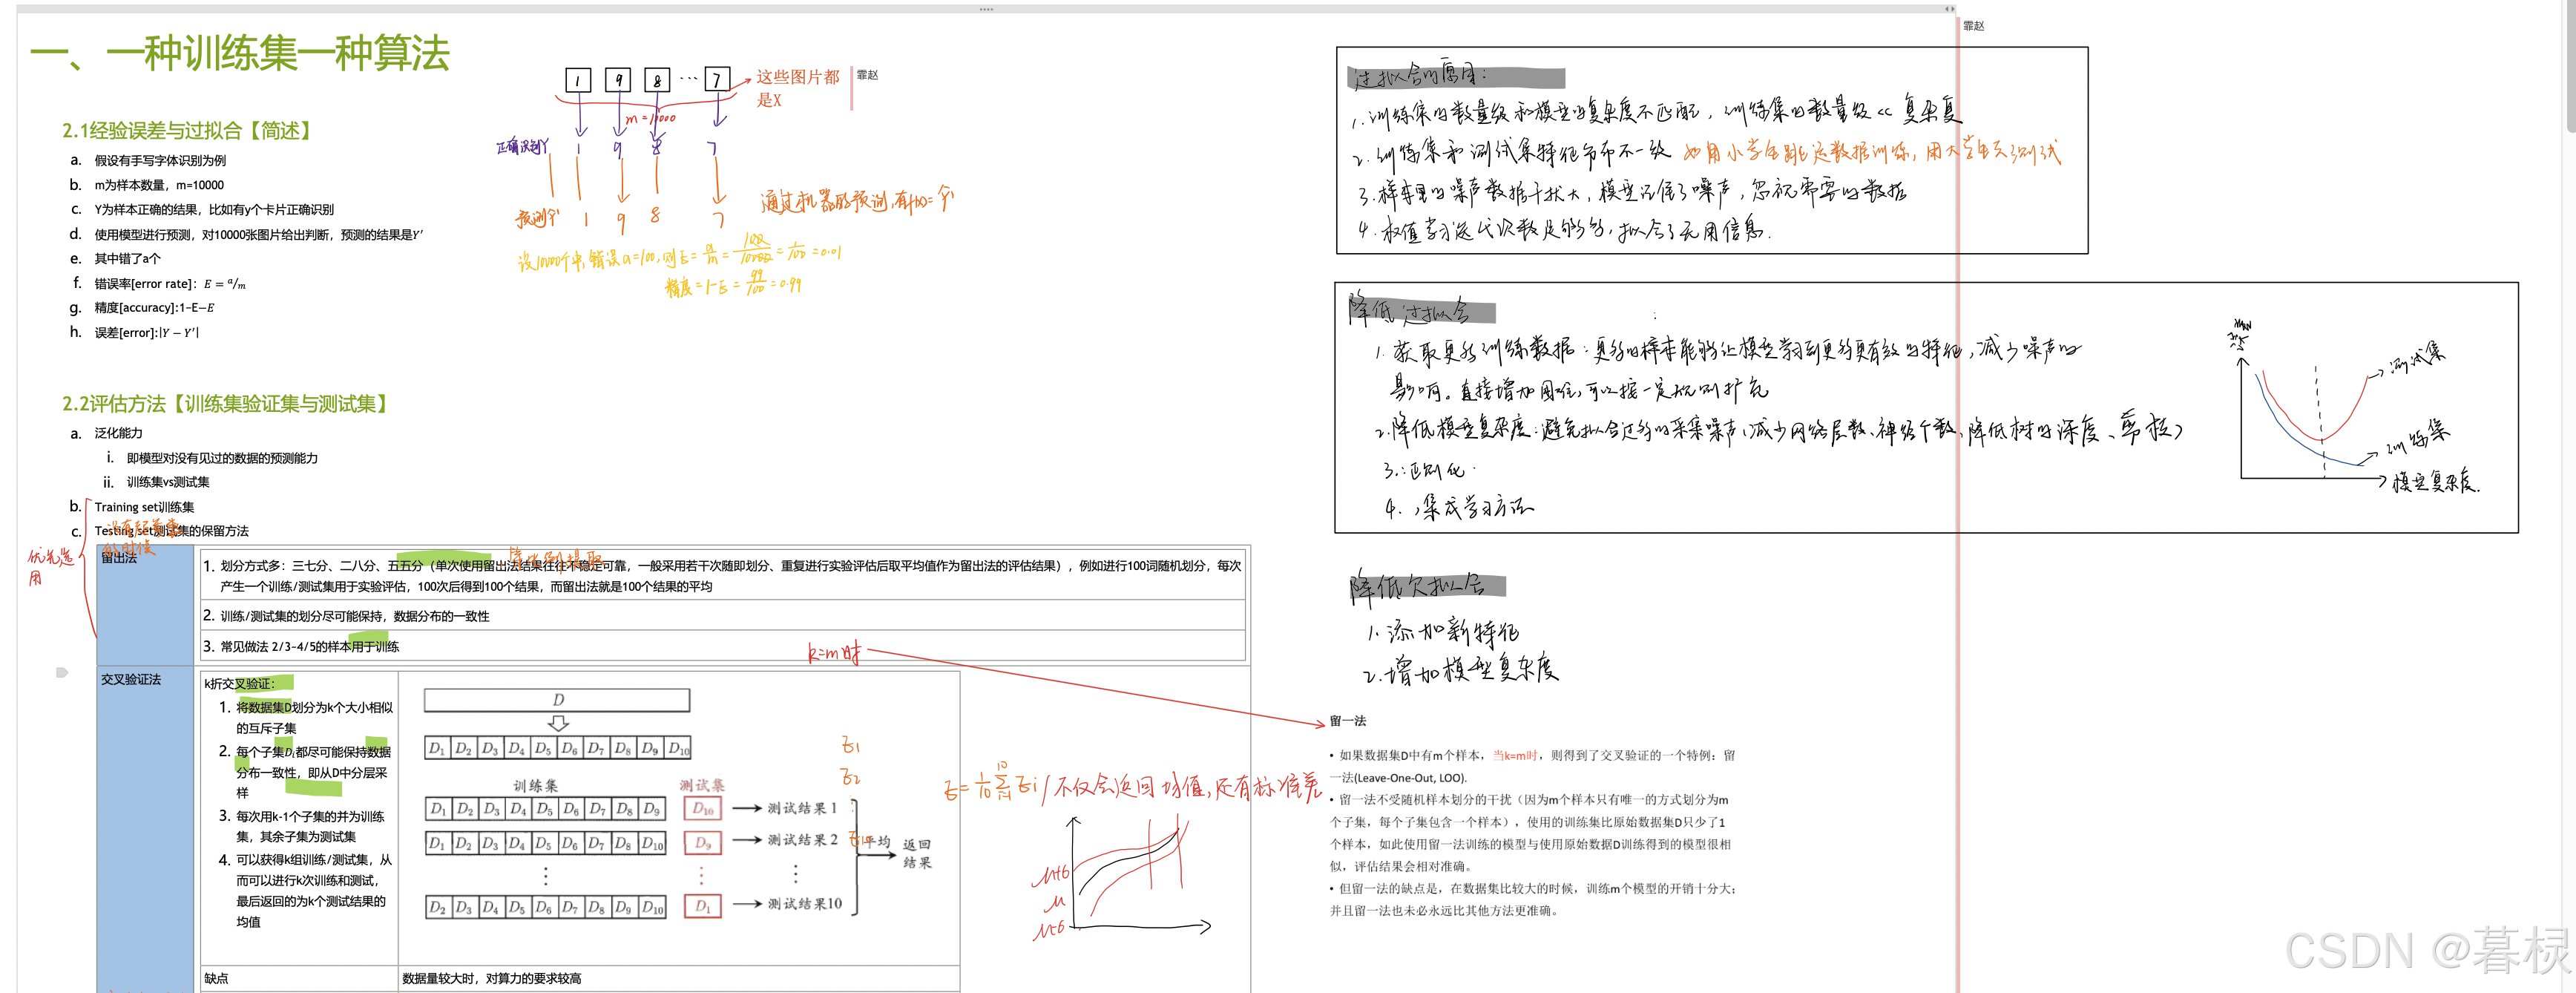 霏赵
一、一种训练集一种算法
1 9 8 … 7
这些图片都
是X
霏赵
m=10000
正确识别Y 1 9 8 7
预测Y' 1 9 8 7
设10000个中,错误a=100,则E=a/m=100/10000=1/100=0.01
精度=1-E=99/100=0.99
2.1经验误差与过拟合【简述】
a. 假设有手写字体识别为例
b. m为样本数量，m=10000
c. Y为样本正确的结果，比如有y个卡片正确识别
d. 使用模型进行预测，对10000张图片给出判断，预测的结果是Y′
e. 其中错了a个
f. 错误率[error rate]：E = a/m
g. 精度[accuracy]:1-E−E
h. 误差[error]:|Y − Y′|
2.2评估方法【训练集验证集与测试集】
a. 泛化能力
i. 即模型对没有见过的数据的预测能力
ii. 训练集vs测试集
b. Training set训练集
c. Testing set测试集的保留方法
优先选
用
留出法
1. 划分方式多：三七分、二八分、五五分（单次使用留出法结果往往不稳定可靠，一般采用若干次随即划分、重复进行实验评估后取平均值作为留出法的评估结果），例如进行100词随机划分，每次
产生一个训练/测试集用于实验评估，100次后得到100个结果，而留出法就是100个结果的平均
2. 训练/测试集的划分尽可能保持，数据分布的一致性
3. 常见做法 2/3-4/5的样本用于训练
k=m时
交叉验证法
k折交叉验证：
1. 将数据集D划分为k个大小相似
的互斥子集
2. 每个子集Dᵢ都尽可能保持数据
分布一致性，即从D中分层采
样
3. 每次用k-1个子集的并为训练
集，其余子集为测试集
4. 可以获得k组训练/测试集，从
而可以进行k次训练和测试，
最后返回的为k个测试结果的
均值
D
D₁ D₂ D₃ D₄ D₅ D₆ D₇ D₈ D₉ D₁₀
训练集 测试集
D₁ D₂ D₃ D₄ D₅ D₆ D₇ D₈ D₉ D₁₀ 测试结果1
D₁ D₂ D₃ D₄ D₅ D₆ D₇ D₈ D₁₀ D₉ 测试结果2
⋮ ⋮ ⋮
D₂ D₃ D₄ D₅ D₆ D₇ D₈ D₉ D₁₀ D₁ 测试结果10
平均 返回
结果
E1
E2
E10
不仅会返回均值,还有标准差
μ+6
μ
μ-6
缺点 数据量较大时，对算力的要求较高
过拟合的原因:
1.训练集的数量级和模型的复杂度不匹配，训练集的数量级<<复杂复
2.训练集和测试集特征分布不一致 如用小学生跳远数据训练,用大学生去测试
3.样本里的噪声数据干扰大，模型记住了噪声，忽视需要的数据
4.权值学习迭代次数足够多,拟合了无用信息.
降低过拟合
1.获取更多训练数据:更多的样本能够让模型学习到更多更有效的特征,减少噪声的
影响。直接增加困难,可以按一定规则扩充
2.降低模型复杂度:避免拟合过多的采集噪声(减少网络层数、神经个数、降低树的深度、剪枝)
3.正则化
4.集成学习方法
测试集
训练集
模型复杂度.
降低欠拟合
1.添加新特征
2.增加模型复杂度
留一法
• 如果数据集D中有m个样本，当k=m时，则得到了交叉验证的一个特例：留
一法(Leave-One-Out, LOO).
• 留一法不受随机样本划分的干扰（因为m个样本只有唯一的方式划分为m
个子集，每个子集包含一个样本），使用的训练集比原始数据集D只少了1
个样本，如此使用留一法训练的模型与使用原始数据D训练得到的模型很相
似，评估结果会相对准确。
• 但留一法的缺点是，在数据集比较大的时候，训练m个模型的开销十分大；
并且留一法也未必永远比其他方法更准确。
CSDN @暮棂